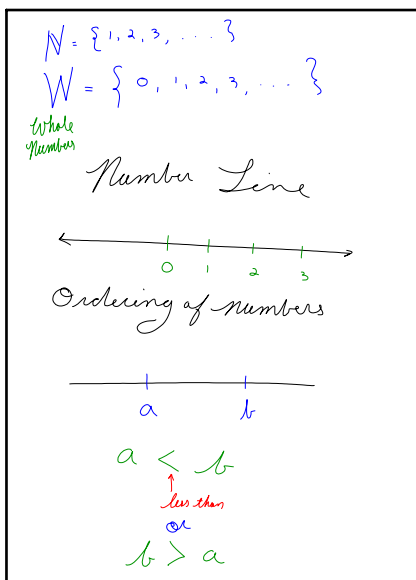 N = {1, 2, 3, ....}
W = { 0, 1, 2, 3, .... }
Whole
Numbers
Number Line
0 1 2 3
Ordering of numbers
a b
a < b
less than
or
b > a